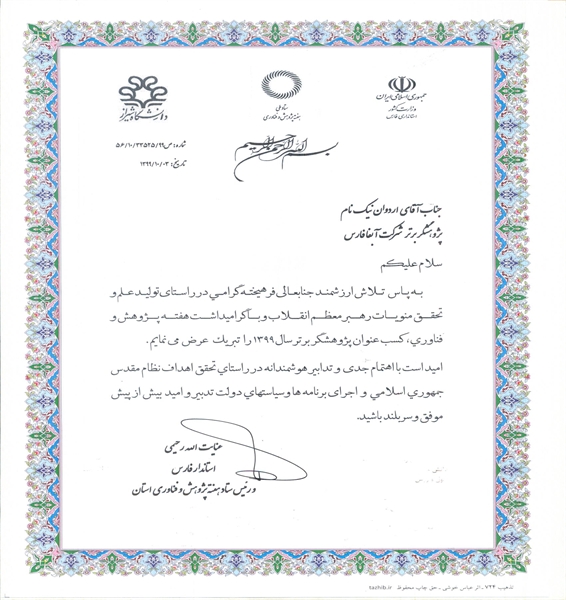 جمهوری اسلامی ایران
وزارت کشور
استانداری فارس
ستاد ملی
هفته پژوهش و فناوری
دانشگاه شیراز
بسم الله الرحمن الرحیم
شماره: ص/۵۶/۱۰/۳۳۵۲۵/۹۹
تاریخ: ۱۳۹۹/۱۰/۰۳
جناب آقای اردوان نیک نام
پژوهشگر برتر شرکت آبفا فارس
سلام علیکم
به پاس تلاش ارزشمند جنابعالی فرهیخته گرامی در راستای تولید علم و
تحقق منویات رهبر معظم انقلاب و با گرامیداشت هفته پژوهش و
فناوری، کسب عنوان پژوهشگر برتر سال ۱۳۹۹ را تبریک عرض می نمایم.
امید است با اهتمام جدی و تدابیر هوشمندانه در راستای تحقق اهداف نظام مقدس
جمهوری اسلامی و اجرای برنامه ها و سیاستهای دولت تدبیر و امید بیش از پیش
موفق و سربلند باشید.
عنایت الله رحیمی
استاندار فارس
و رئیس ستاد هفته پژوهش و فناوری استان
تذهیب ۷۲۴ - اثر عباس خوشی - حق چاپ محفوظ tazhib.ir